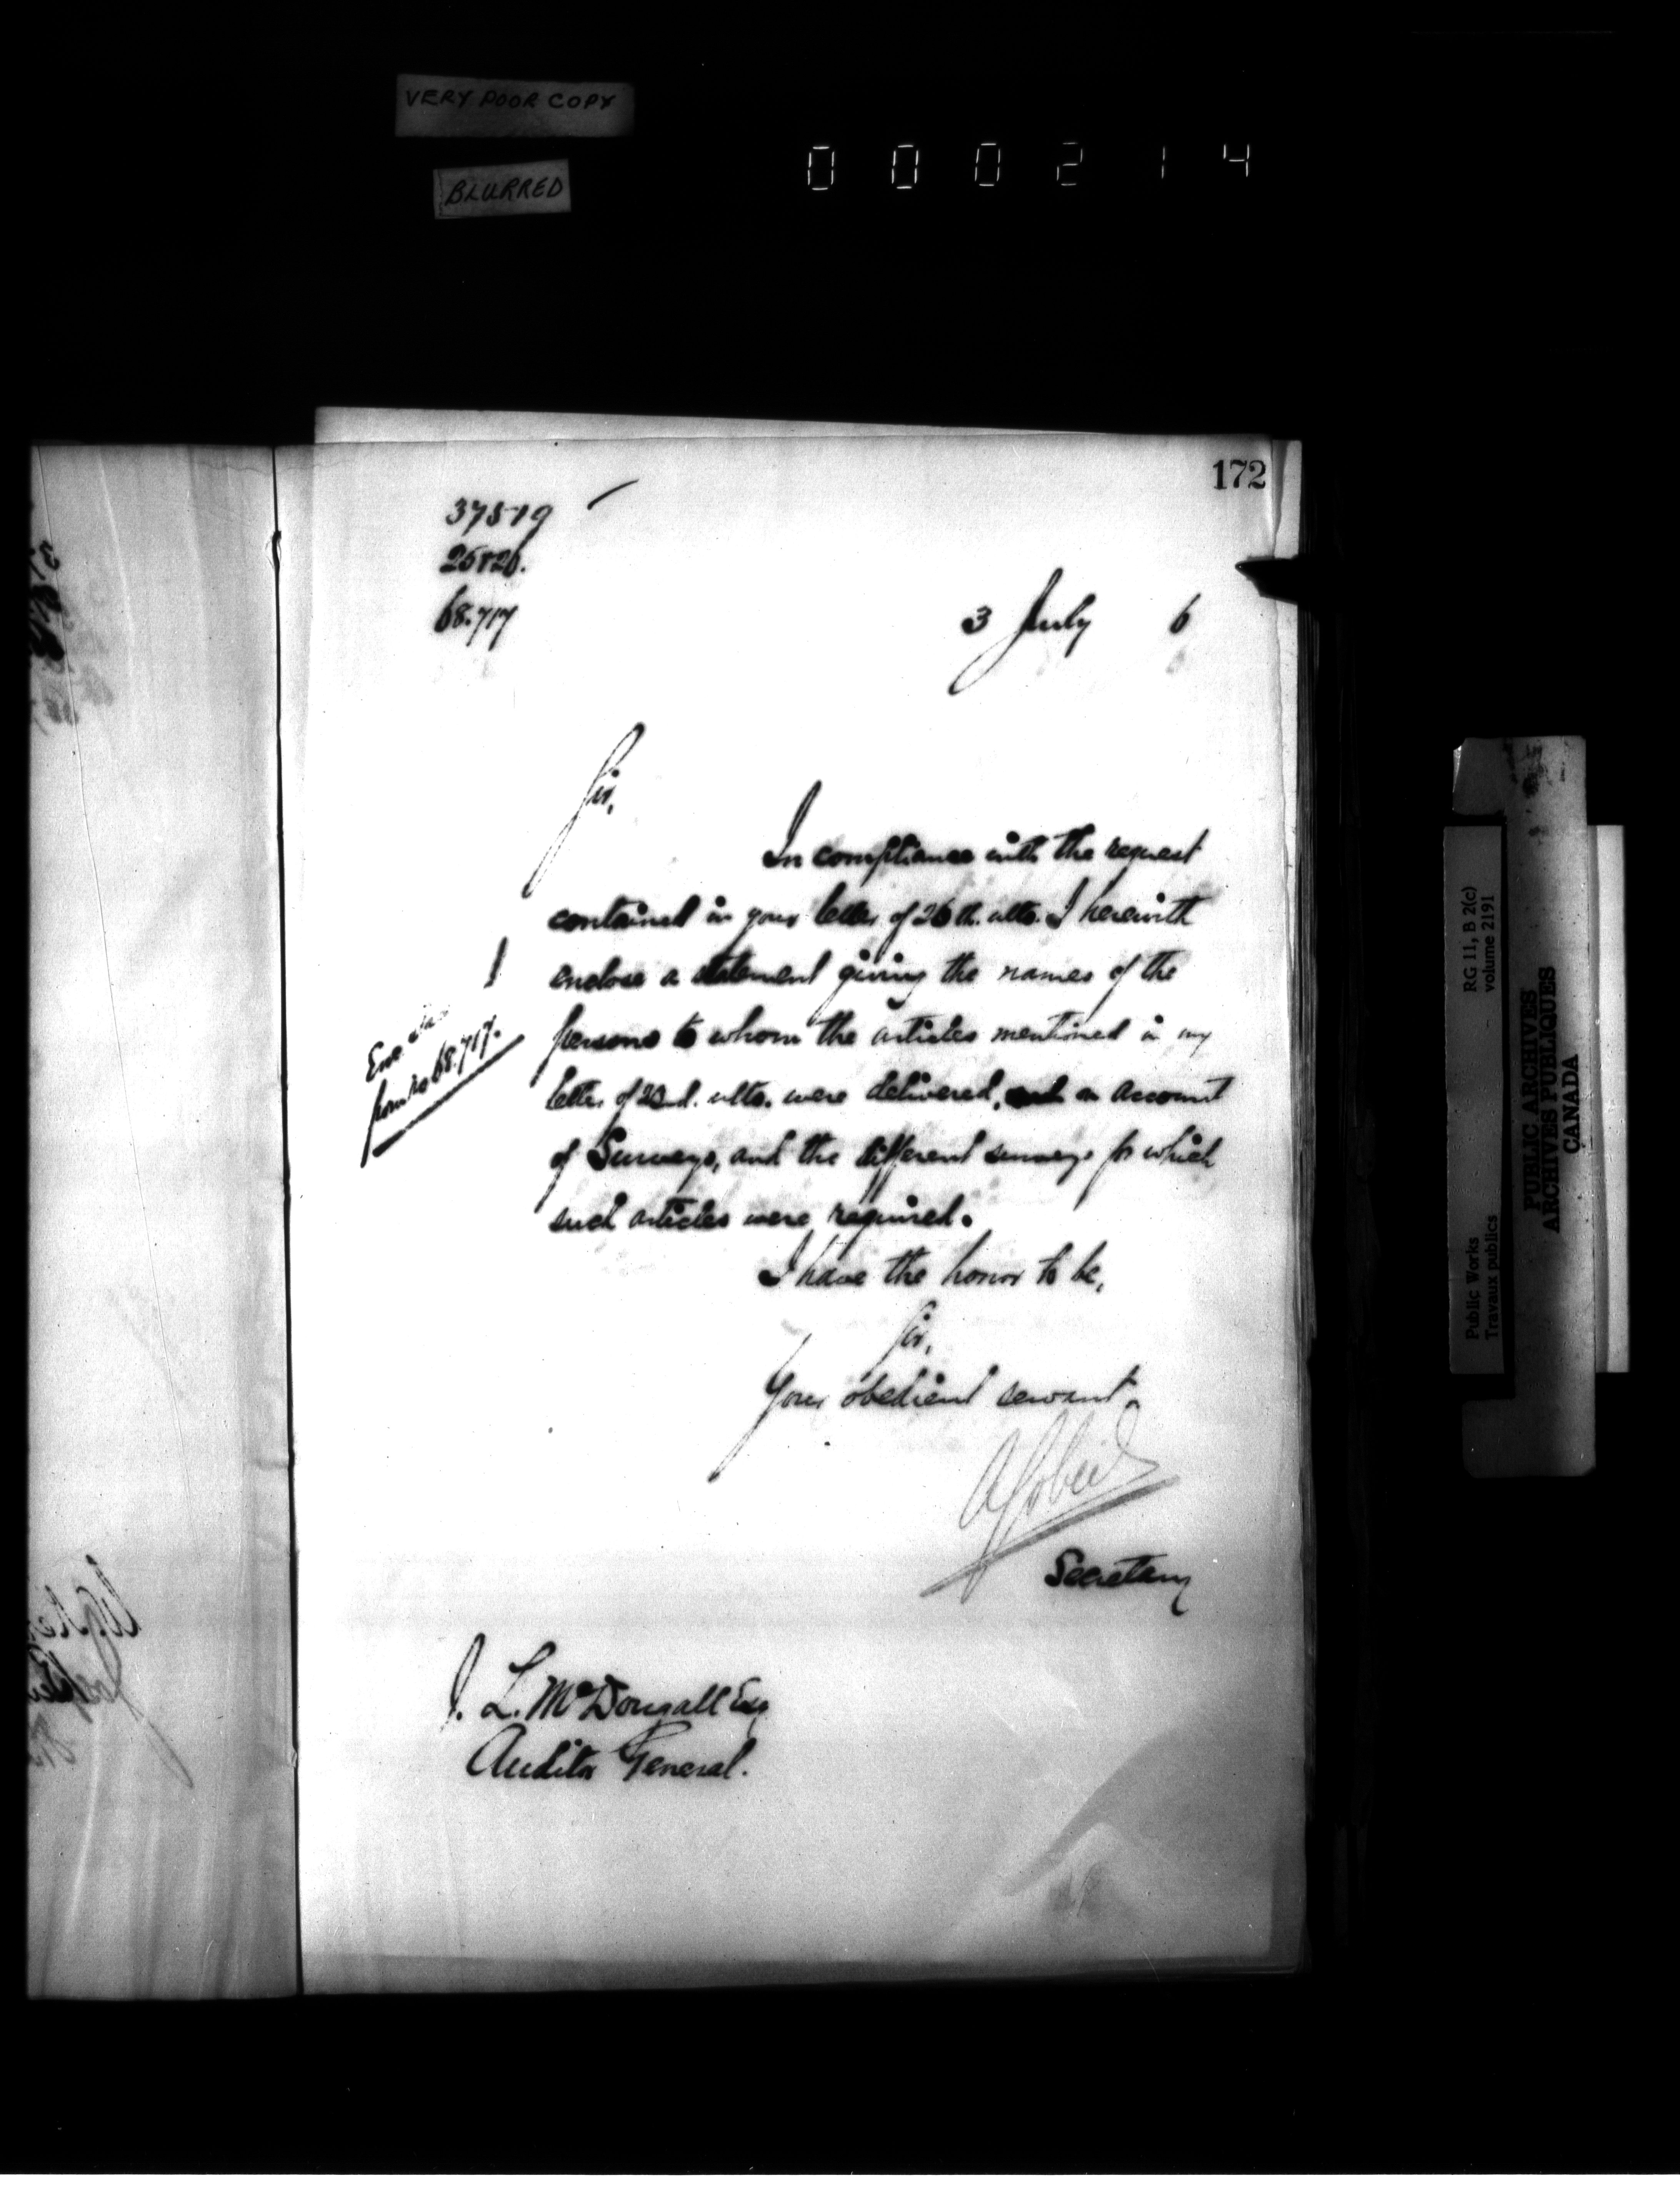 VERY POOR COPY
BLURRED
000214
172
37519
25826.
68.717
3 July 6
Sir,
In compliance with the request
contained in your letter of 26th. ulto. I herewith
enclose a statement giving the names of the
persons to whom the articles mentioned in my
letter of 22nd. ulto. were delivered, on account
of Surveys, and the different surveys for which
such articles were required.
I have the honor to be,
Sir,
Your obedient servant.
AGobeil
Secretary
1
from No 68.717.
J. L. McDougall Esq
Auditor General.
Public Works
Travaux publics
RG 11, B 2(c)
volume 2191
PUBLIC ARCHIVES
ARCHIVES PUBLIQUES
CANADA